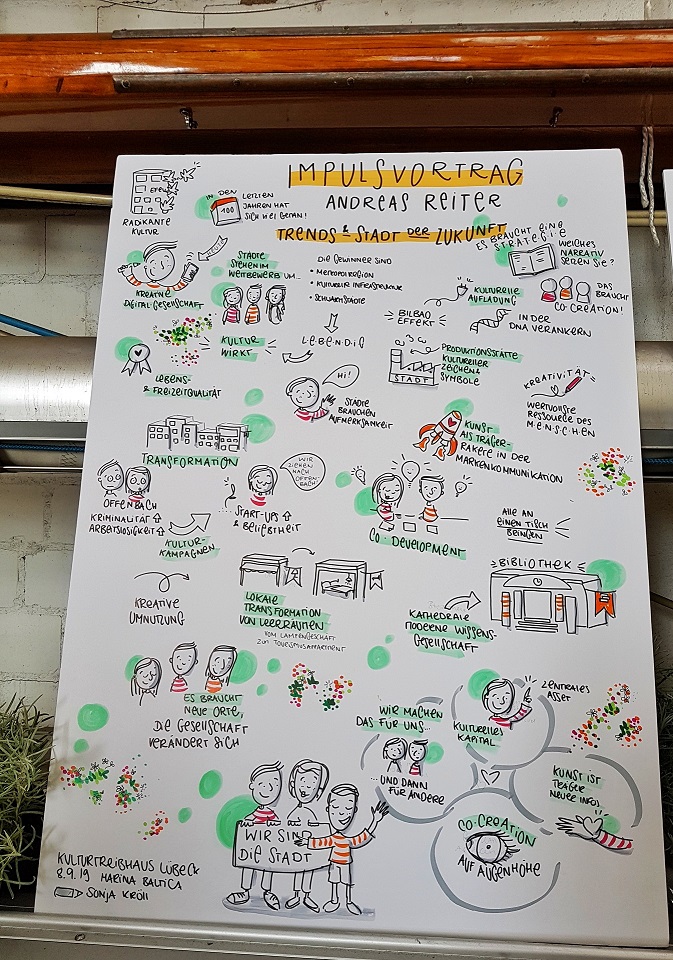 IMPULSVORTRAG
ANDREAS REITER
TRENDS & STADT DER ZUKUNFT
EFEU
RADIKANTE
KULTUR
IN DEN LETZTEN
JAHREN HAT
SICH VIEL GETAN!
100
KREATIVE
DIGITALGESELLSCHAFT
STÄDTE
STEHEN IM
WETTBEWERB UM...
DIE GEWINNER SIND
• METROPOLREGION
• KULTURELLE INFRASTRUKTUR
• SCHWARMSTÄDTE
ES BRAUCHT EINE
STRATEGIE
WELCHES
NARRATIV
SETZEN SIE?
KULTURELLE
AUFLADUNG
DAS
BRAUCHT
CO-CREATION!
BILBAO
EFFEKT
IN DER
DNA VERANKERN
KULTUR
WIRKT
LEBENDIG
LEBENS-
& FREIZEITQUALITÄT
HI!
STÄDTE
BRAUCHEN
AUFMERKSAMKEIT
STADT
PRODUKTIONSSTÄTTE
KULTURELLER
ZEICHEN &
SYMBOLE
KREATIVITÄT =
WERTVOLLSTE
RESSOURCE DES
M·E·N·S·C·H·E·N
KUNST
ALS TRÄGER-
RAKETE IN DER
MARKENKOMMUNIKATION
TRANSFORMATION
OFFENBACH
KRIMINALITÄT ⇧
ARBEITSLOSIGKEIT ⇧
KULTUR-
KAMPAGNEN
WIR
ZIEHEN
NACH
OFFEN-
BACH!
START-UPS ⇧
& BELIEBTHEIT
CO-DEVELOPMENT
ALLE AN
EINEN TISCH
BRINGEN
KREATIVE
UMNUTZUNG
LOKALE
TRANSFORMATION
VON LEERRÄUMEN
VOM LAMPENGESCHÄFT
ZUM TOURISMUSAPARTMENT
BIBLIOTHEK
KATHEDRALE
MODERNE WISSENS-
GESELLSCHAFT
ES BRAUCHT
NEUE ORTE,
DIE GESELLSCHAFT
VERÄNDERT SICH
WIR MACHEN
DAS FÜR UNS...
...UND DANN
FÜR ANDERE
KULTURELLES
KAPITAL
ZENTRALES
ASSET
KUNST IST
TRÄGER
NEUER INFOS
CO-CREATION
AUF AUGENHÖHE
WIR SIND
DIE STADT
KULTURTREIBHAUS LÜBECK
8.9.19 MARINA BALTICA
SONJA KRÖLL